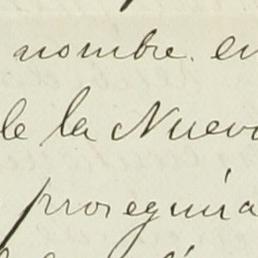 nombre. en
de la Nueva
proseguira